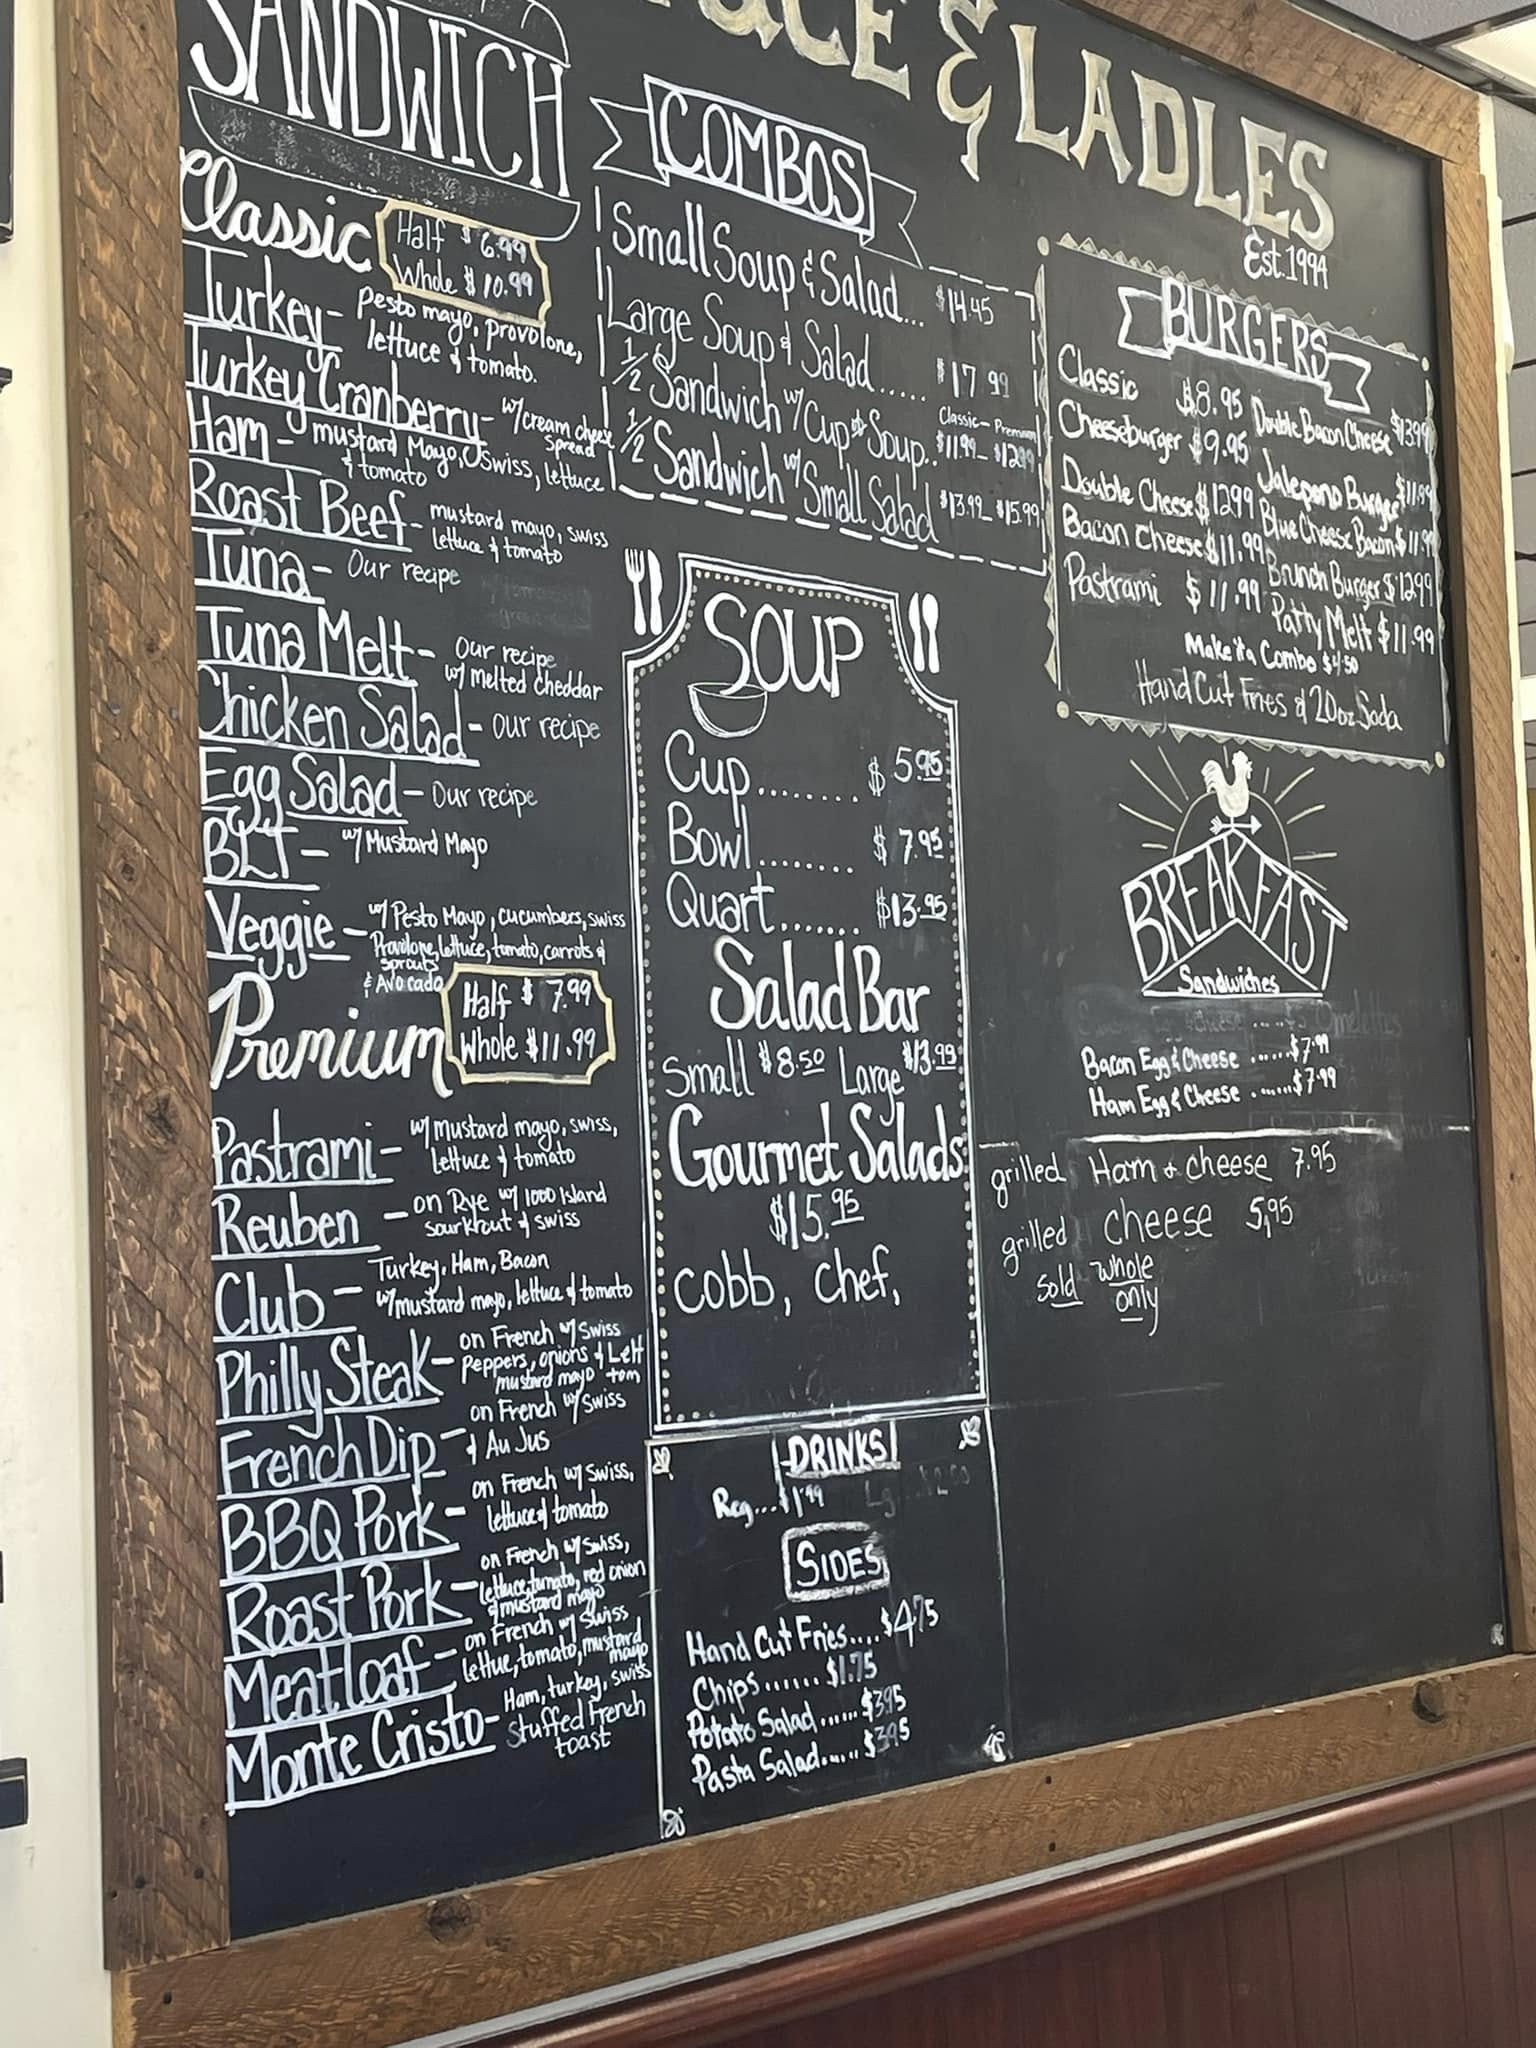 SANDWICH
& LADLES
Est. 1994
Classic
Half $6.99
Whole $10.99
Turkey- Pesto mayo, provolone,
lettuce & tomato.
Turkey Cranberry- w/ cream cheese
spread
Ham- mustard Mayo, Swiss, lettuce
& tomato
Roast Beef- mustard mayo, swiss
lettuce & tomato
Tuna- Our recipe
Tuna Melt- our recipe
w/ melted cheddar
Chicken Salad- our recipe
Egg Salad- Our recipe
BLT- w/ Mustard Mayo
Veggie- w/ Pesto Mayo, cucumbers, swiss
Provolone, lettuce, tomato, carrots &
sprouts
& Avocado
Premium
Half $7.99
Whole $11.99
Pastrami- w/ Mustard mayo, swiss,
lettuce & tomato
Reuben - on Rye w/ 1000 Island
sourkrout & swiss
Club- Turkey, Ham, Bacon
w/ mustard mayo, lettuce & tomato
Philly Steak- on French w/ Swiss
Peppers, onions & Lett
mustard mayo tom
French Dip- on French w/ Swiss
& Au Jus
BBQ Pork- on French w/ Swiss,
lettuce & tomato
Roast Pork- on French w/ Swiss,
lettuce, tomato, red onion
& mustard mayo
Meatloaf- on French w/ Swiss
lettue, tomato, mustard
mayo
Monte Cristo- Ham, turkey, swiss
Stuffed French
toast
COMBOS
Small Soup & Salad... $14.45
Large Soup & Salad...... $17.99
Classic- Premium
1/2 Sandwich w/ Cup of Soup.. $11.99- $12.99
1/2 Sandwich w/ Small Salad $13.99- $15.99
SOUP
Cup........ $5.95
Bowl....... $7.95
Quart....... $13.95
Salad Bar
Small $8.50 Large $13.99
Gourmet Salads
$15.95
cobb, chef,
DRINKS
Reg...$1.99 Lg...$2.50
SIDES
Hand Cut Fries....$4.75
Chips......$1.75
Potato Salad......$3.95
Pasta Salad......$3.95
BURGERS
Classic $8.95
Cheeseburger $9.95
Double Cheese $12.99
Bacon Cheese $11.99
Pastrami $11.99
Double Bacon Cheese $13.99
Jalepeno Burger $11.99
Blue Cheese Bacon $11.99
Brunch Burger $12.99
Patty Melt $11.99
Make it a Combo $4.50
Hand Cut Fries & 20oz Soda
BREAKFAST
Sandwiches
Bacon Egg & Cheese ......$7.99
Ham Egg & Cheese .......$7.99
grilled Ham & cheese 7.95
grilled cheese 5,95
sold whole
only